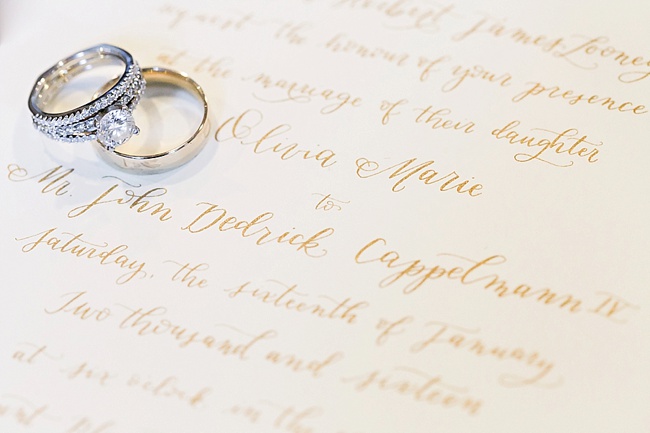 Herbert James Looney
request the honour of your presence
at the marriage of their daughter
Olivia Marie
to
Mr. John Dedrick Cappelmann IV
Saturday, the sixteenth of January
Two thousand and sixteen
at six o'clock in the